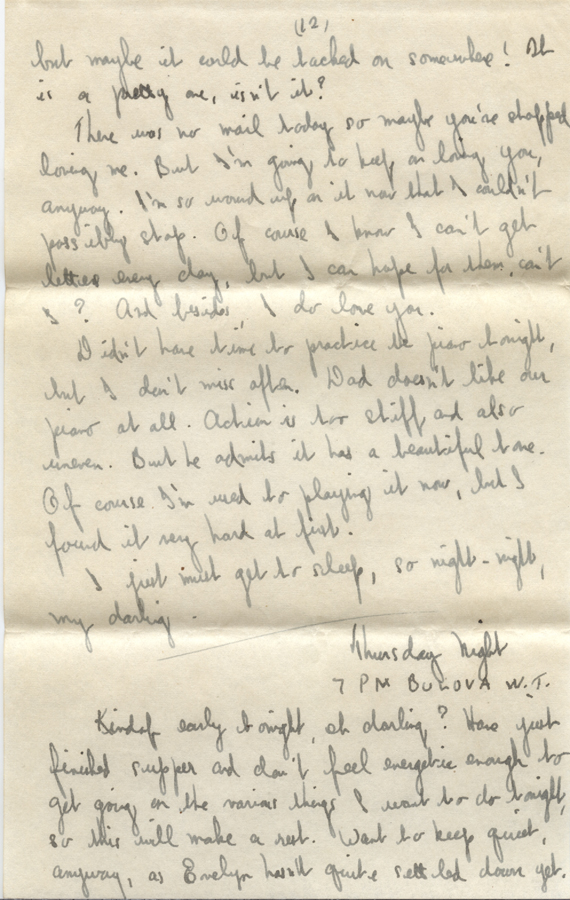 (12)
but maybe it could be tacked on somewhere! It
is a pretty one, isn't it?
There was no mail today so maybe you've stopped
loving me. But I'm going to keep on loving you,
anyway. I'm so wound up on it now that I couldn't
possibly stop. Of course I know I can't get
letters every day, but I can hope for them, can't
I? And besides, I do love you.
Didn't have time to practice the piano tonight,
but I don't miss often. Dad doesn't like our
piano at all. Action is too stiff and also
uneven. But he admits it has a beautiful tone.
Of course I'm used to playing it now, but I
found it very hard at first.
I just must get to sleep, so night-night,
my darling.
Thursday Night
7 PM BULOVA W.T.
Kindof early tonight, eh darling? Have just
finished supper and don't feel energetic enough to
get going on the various things I want to do tonight,
so this will make a rest. Want to keep quiet,
anyway, as Evelyn hasn't quite settled down yet.